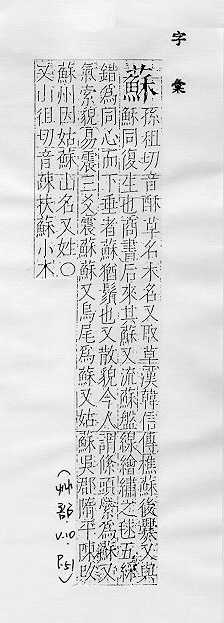 字彙
蘇
孫徂切音酥草名木名又取草漢韓信傳樵蘇後爨又與
蘇同復生也商書后來其蘇又流蘇盤線繪繡之毬五綵
錯爲同心而下垂者蘇猶鬚也又散貌今人謂條頭縈爲蘇又
氣索貌易震三爻震蘇蘇又鳥尾爲蘇又姑蘇吳郡隋平陳改
蘇州因姑蘇山名又姓○
又山徂切音疎扶蘇小木
(艸部.V.10. P.51)